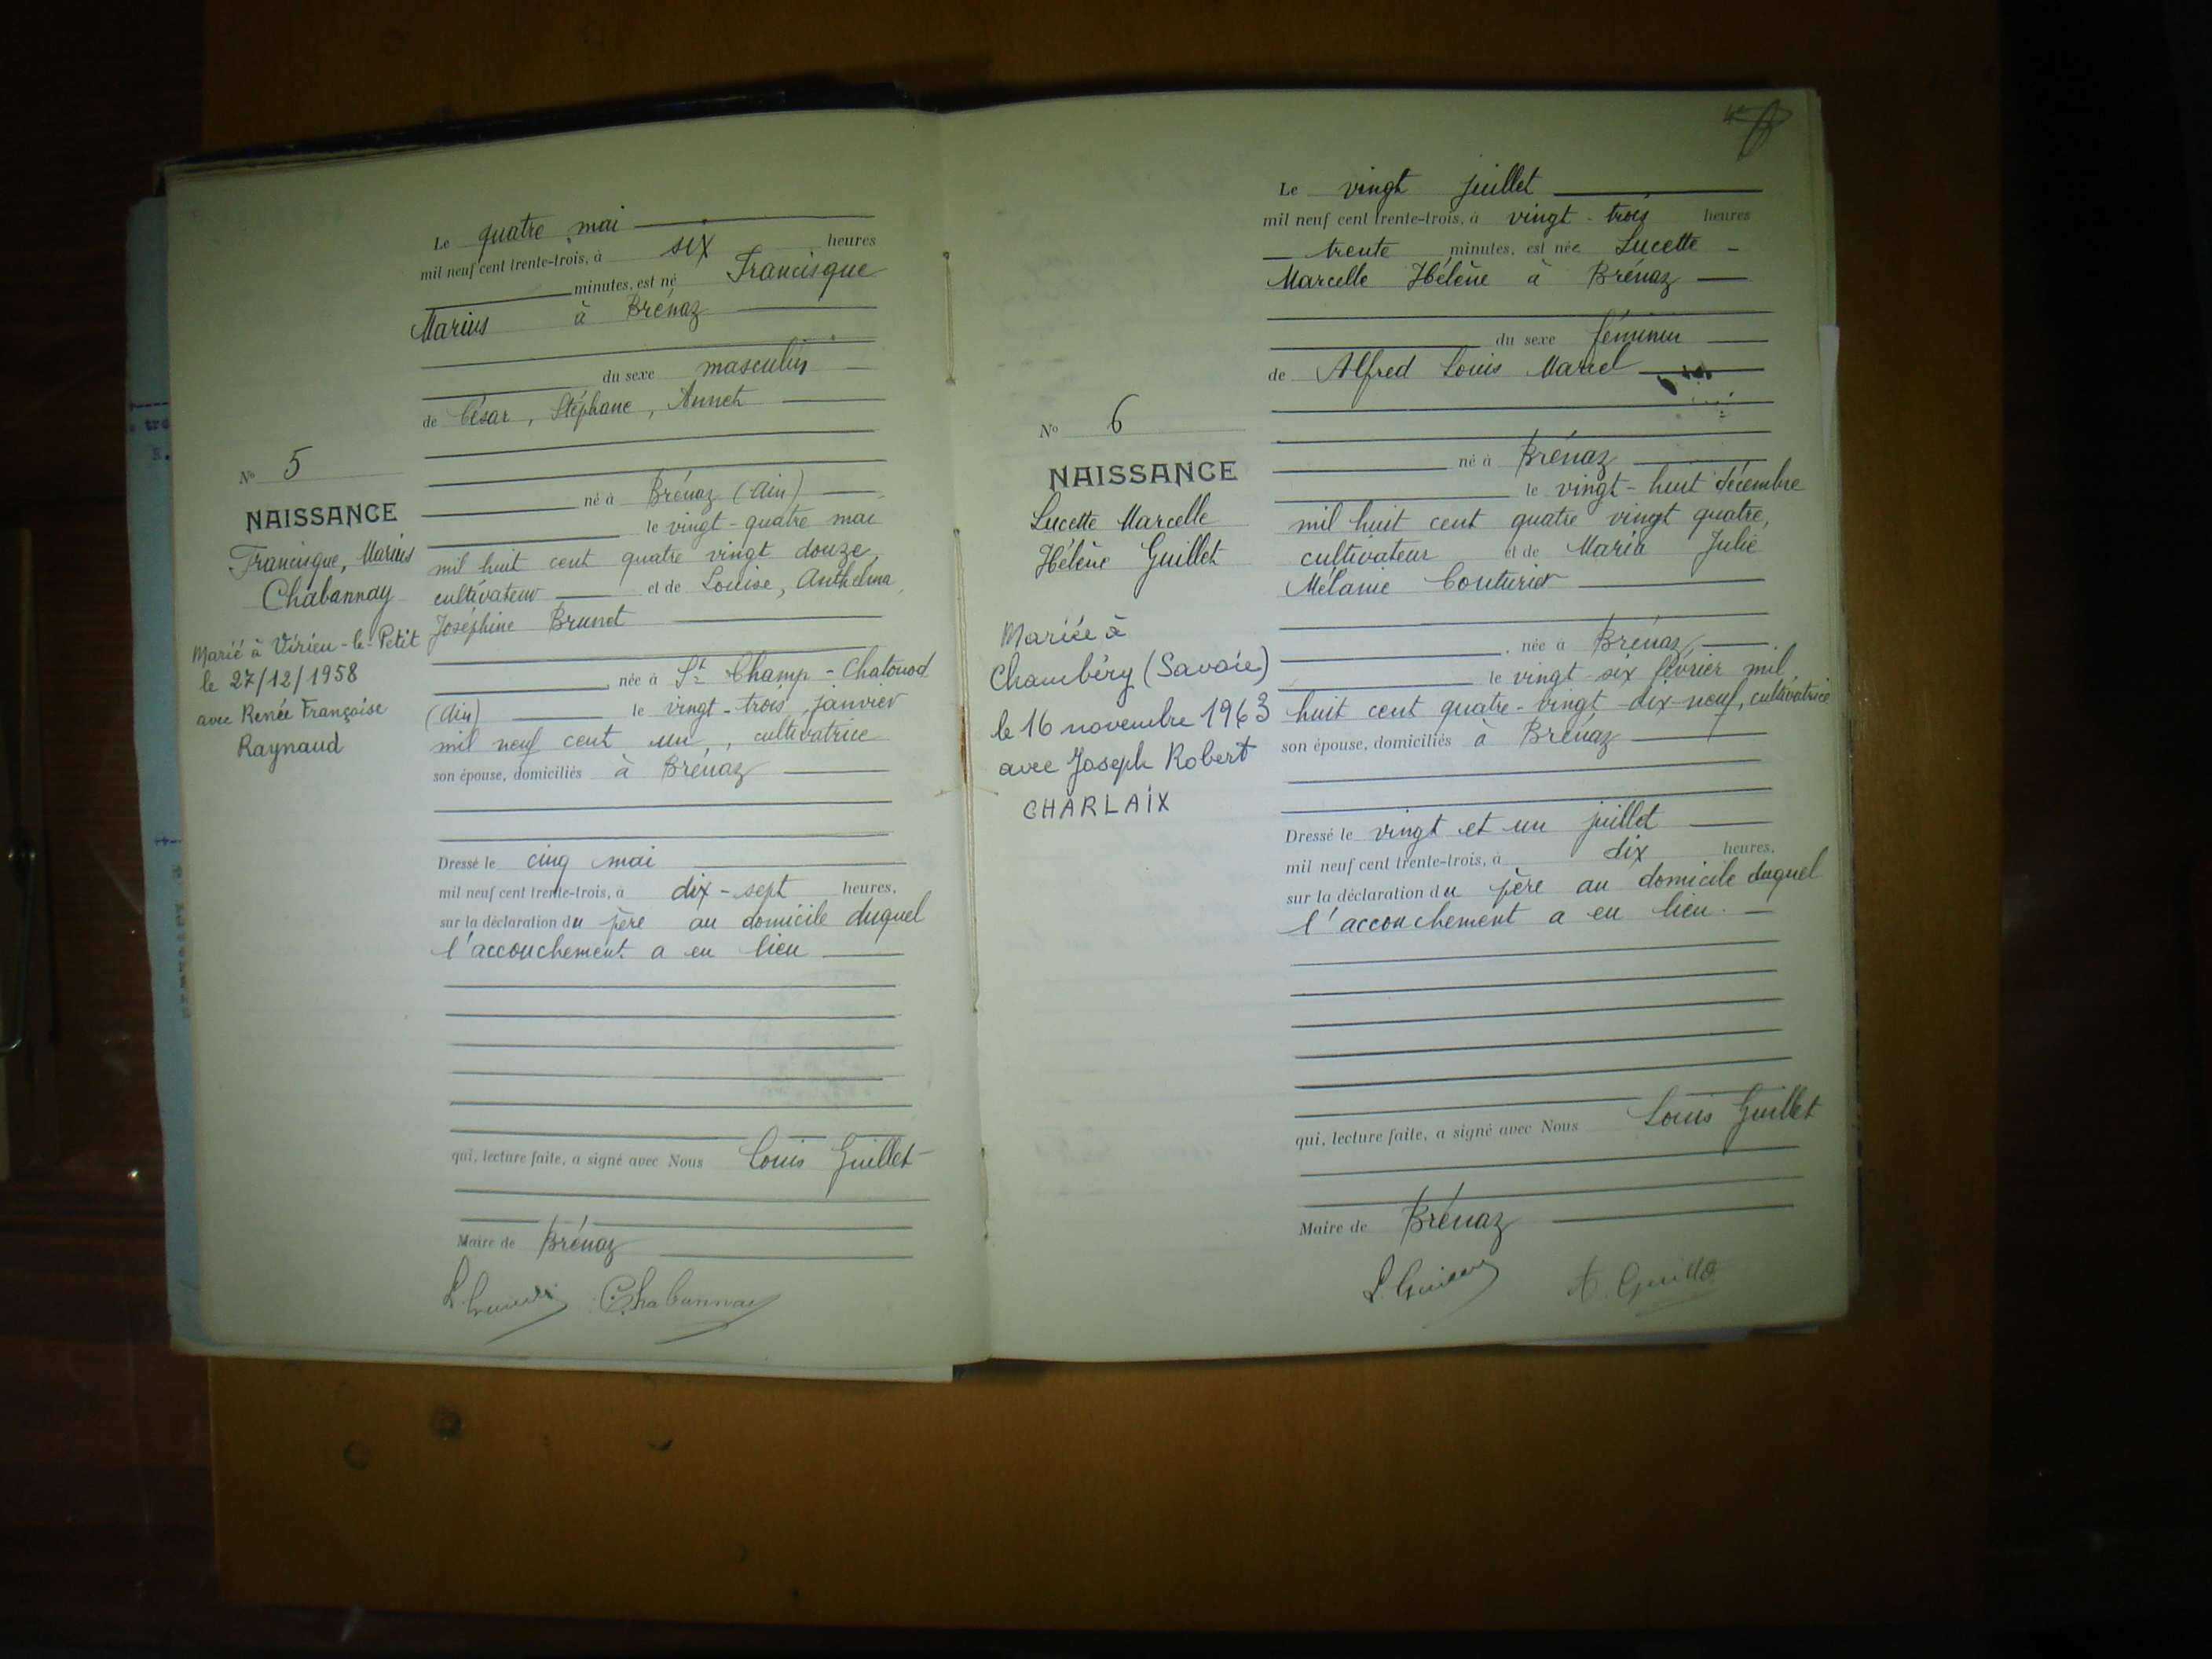 Le quatre mai
mil neuf cent trente-trois, à six heures
minutes, est né Francisque
Marius à Brénaz
du sexe masculin
de César, Stéphane, Annet
né à Brénaz (Ain)
le vingt-quatre mai
mil huit cent quatre vingt douze,
cultivateur et de Louise, Anthelma,
Joséphine Brunet
née à St Champ-Chatonod
(Ain) le vingt-trois janvier
mil neuf cent un, cultivatrice
son épouse, domiciliés à Brénaz
Dressé le cinq mai
mil neuf cent trente-trois, à dix-sept heures,
sur la déclaration du père au domicile duquel
l'accouchement a eu lieu
qui, lecture faite, a signé avec Nous Louis Guillet
Maire de Brénaz
Chabannay
No 5
NAISSANCE
Francisque, Marius
Chabannay
Marié à Virieu-le-Petit
le 27/12/1958
avec Renée Françoise
Raynaud
Le vingt juillet
mil neuf cent trente-trois, à vingt-trois heures
trente minutes, est née Lucette
Marcelle Hélène à Brénaz
du sexe féminin
de Alfred Louis Marcel
né à Brénaz
le vingt-huit décembre
mil huit cent quatre vingt quatre,
cultivateur et de Maria Julie
Mélanie Couturier
née à Brénaz,
le vingt-six février mil
huit cent quatre-vingt-dix-neuf, cultivatrice
son épouse, domiciliés à Brénaz
Dressé le vingt et un juillet
mil neuf cent trente-trois, à dix heures,
sur la déclaration du père au domicile duquel
l'accouchement a eu lieu.
qui, lecture faite, a signé avec Nous Louis Guillet
Maire de Brénaz
No 6
NAISSANCE
Lucette Marcelle
Hélène Guillet
Mariée à
Chambéry (Savoie)
le 16 novembre 1963
avec Joseph Robert
CHARLAIX